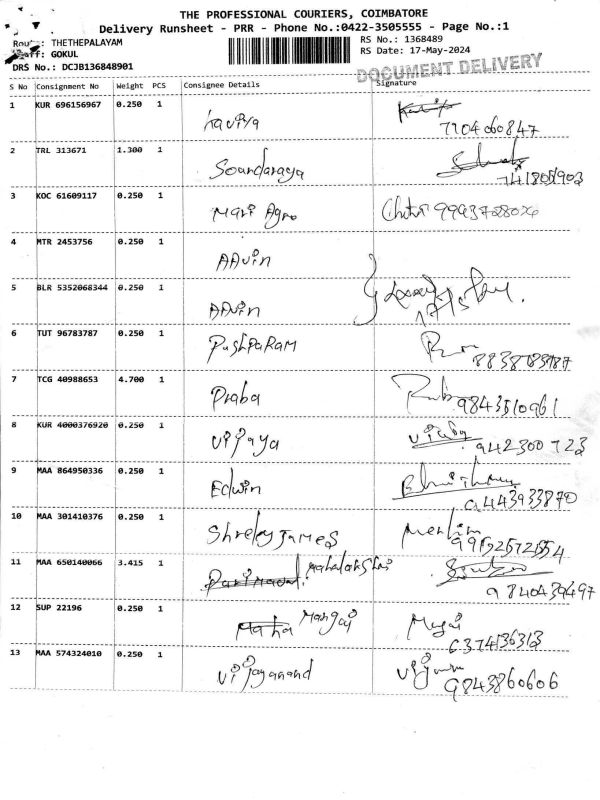 THE PROFESSIONAL COURIERS, COIMBATORE
Delivery Runsheet - PRR - Phone No.:0422-3505555 - Page No.:1
Route: THETHEPALAYAM RS No.: 1368489
Staff: GOKUL RS Date: 17-May-2024
DRS No.: DCJB136848901 DOCUMENT DELIVERY
S No Consignment No Weight PCS Consignee Details Signature
1 KUR 696156967 0.250 1 kaviya
7904060847
2 TRL 313671 1.300 1 Soundaraya
3 KOC 61609117 0.250 1 Mari Agro
4 MTR 2453756 0.250 1 AAvin
5 BLR 5352068344 0.250 1 AAvin
6 TUT 96783787 0.250 1 PushpaRAM
7 TCG 40988653 4.700 1 Praba
9843510961
8 KUR 4000376920 0.250 1 Vijaya
942300723
9 MAA 864950336 0.250 1 Edwin
9443933870
10 MAA 301410376 0.250 1 James
11 MAA 650140066 3.415 1
9840439497
12 SUP 22196 0.250 1 Maha Mangai
6374136313
13 MAA 574324010 0.250 1 Vijayanand
9843860606